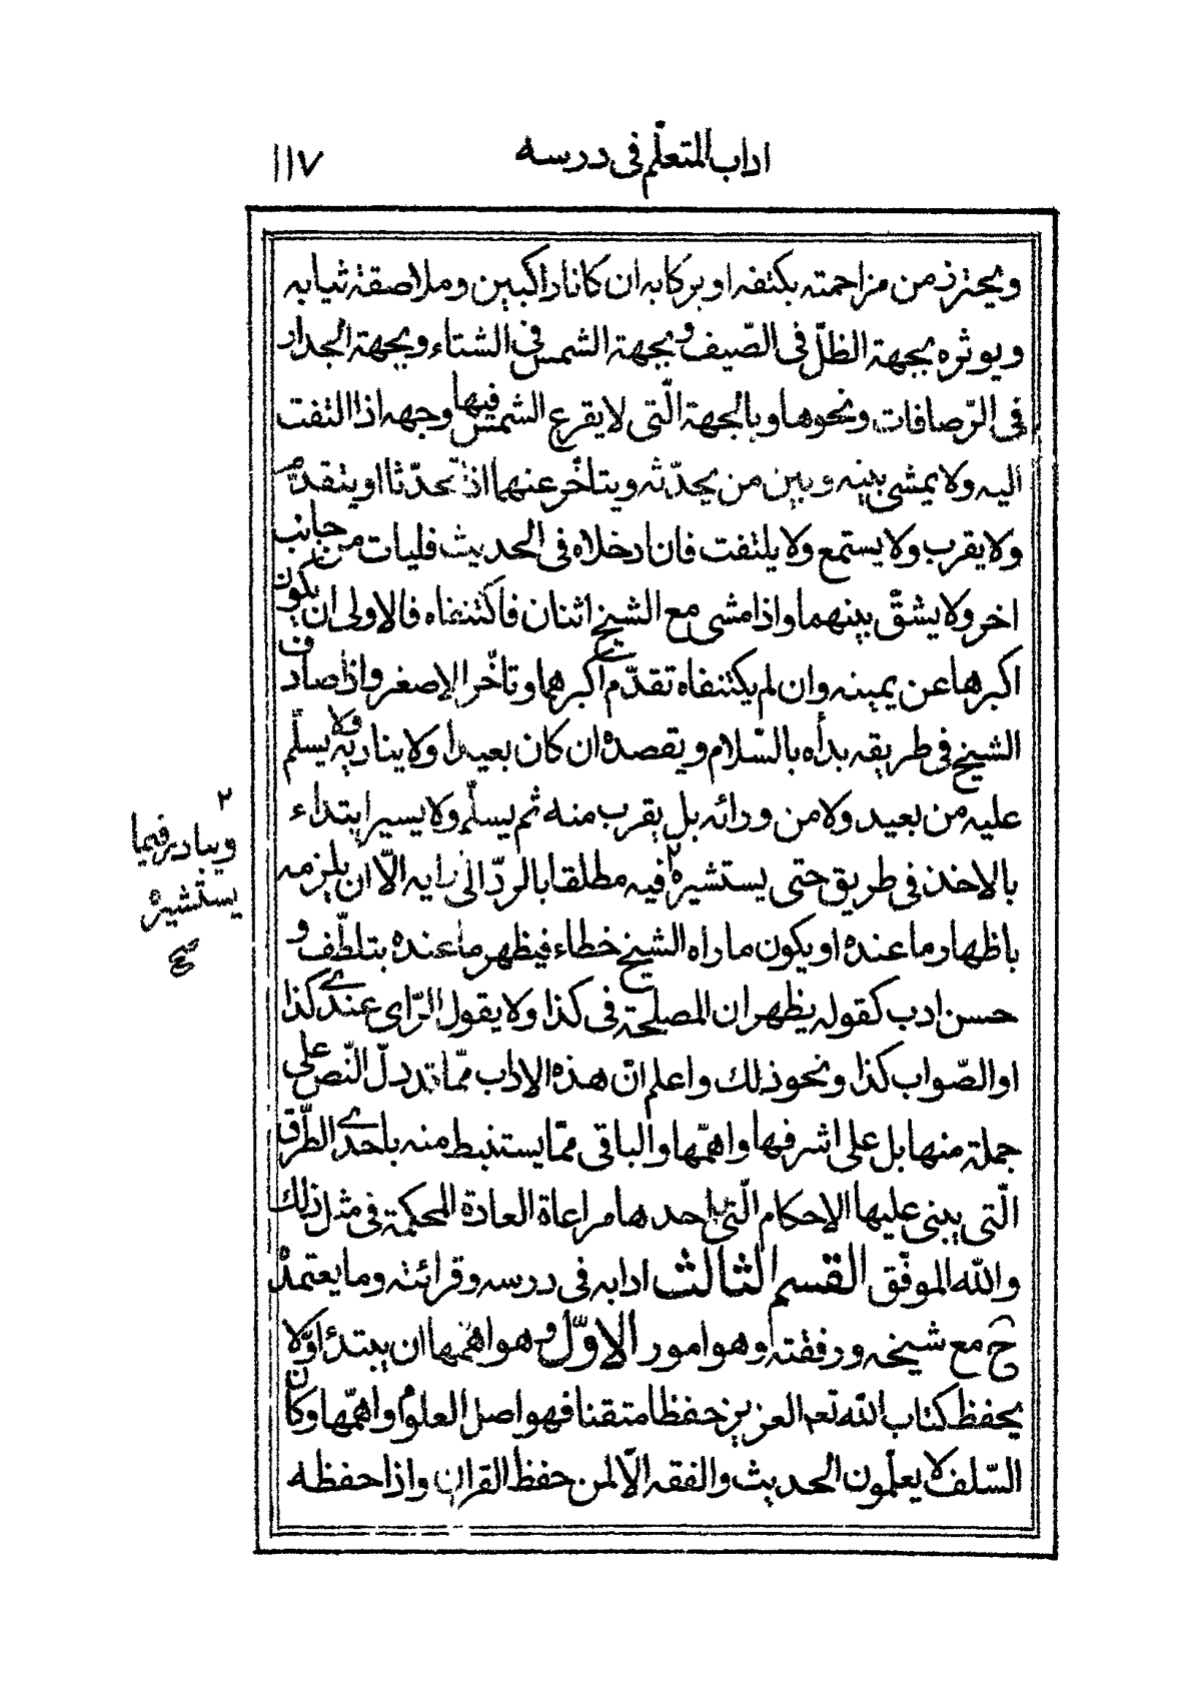 اداب المتعلّم فى درسه
١١٧
ويحترز من مزاحمته بكتفه او بركابه ان كانا راكبين وملاصقة ثيابه
ويوثره بجهة الظلّ فى الصّيف وبجهة الشمس فى الشتاء وبجهة الجدار
فى الرّصافات ونحوها وبالجهة الّتى لا يقرع الشمس فيها وجهه اذا التفت
اليه ولا يمشى بينه وبين من يحدّثه ويتاخّر عنهما اذا تحدّثا او يتقدّم
ولا يقرب ولا يستمع ولا يلتفت فان ادخلاه فى الحديث فليات من جانب
اخر ولا يشقّ بينهما واذا مشى مع الشيخ اثنان فاكتنفاه فالاولى ان يكون
اكبرهما عن يمينه وان لم يكتنفاه تقدّم اكبرهما وتاخّر الاصغر واذا صادف
الشيخ فى طريقه بدأه بالسّلام ويقصده ان كان بعيدا ولا يناديه ولا يسلّم
عليه من بعيد ولا من ورائه بل يقرب منه ثم يسلّم ولا يسير ابتداء
بالاخذ فى طريق حتى يستشيره٢ فيه مطلقا بالردّ الى رايه الّا ان يلزمه
باظهار ما عنده او يكون ما راه الشيخ خطاء فيظهر ما عنده بتلطّف و
حسن ادب كقوله يظهر ان المصلحة فى كذا ولا يقول الرّاى عندى كذا
او الصّواب كذا ونحو ذلك واعلم انّ هذه الاداب ممّا قد دلّ النّص على
جملة منها بل على اشرفها واهمّها والباقى ممّا يستنبط منه باحدى الطّرق
الّتى يبنى عليها الاحكام الّتى احدها مراعاة العادة المحكمة فى مثل ذلك
والله الموفّق القسم الثالث ادابه فى درسه وقرائته وما يعتمد
ح مع شيخه ورفقته وهو امور الاوّل وهو اهمّها ان يبتدئ اوّلا
بحفظ كتاب الله تعم العزيز حفظا متقنا فهو اصل العلوم واهمّها وكان
السّلف لا يعلّمون الحديث والفقه الّا لمن حفظ القران واذا حفظه
٢
ويبادر فيما
يستشيره
صح